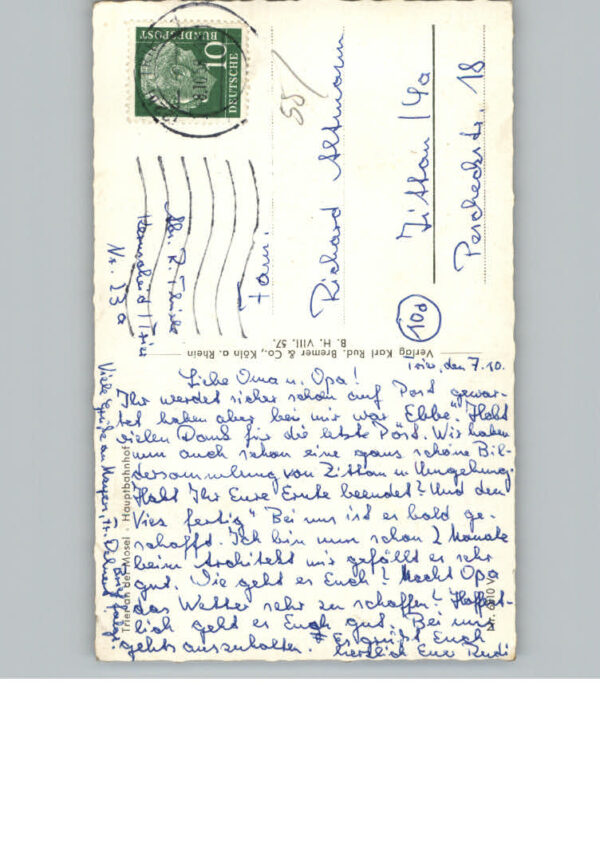 Trier, den 7.10.
Liebe Oma u. Opa!
Ihr werdet sicher schon auf Post gewar-
tet haben aber bei mir war „Ebbe". Habt
vielen Dank für die letzte Post. Wir haben
nun auch schon eine ganz schöne Bil-
dersammlung von Zittau u. Umgebung.
Habt Ihr Eure Ernte beendet? Und den
bei uns ist es bald ge-
schafft. Ich bin nun schon 2 Monate
beim Architekt mir gefällt es sehr
gut. Wie geht es Euch? Macht Opa
das Wetter sehr zu schaffen? Hoffent-
lich geht es Euch gut. Bei uns
gehts auszuhalten. Es grüßt Euch
herzlich Eure Rudi
Viele Grüße an
Fam.
Richard Altmann
Zittau /Sa
Pescheckstr. 18
(10a)
Abs. R. Thiele
/Trier
Nr. 23a
58/
DEUTSCHE
BUNDESPOST
10
Trier an der Mosel · Hauptbahnhof
Verlag Karl Rud. Bremer & Co., Köln a. Rhein
B. H. VIII. 57.